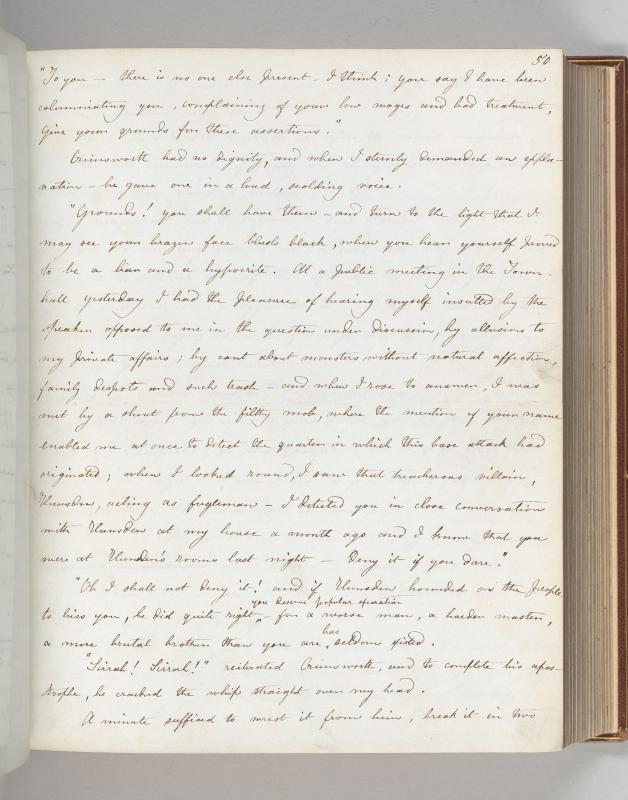 50
"To you — there is no one else present – I think; you say I have been
calumniating you, complaining of your low wages and bad treatment,
Give your grounds for these assertions."
Crimsworth had no dignity, and when I sternly demanded an expla-
nation – he gave one in a loud, scolding voice.
"Grounds! you shall have them – and turn to the light that I
may see your brazen face blush black, when you hear yourself proved
to be a liar and a hypocrite. At a public meeting in the Town-
hall yesterday I had the pleasure of hearing myself insulted by the
speaker opposed to me in the question under discussion, by allusions to
my private affairs; by cant about monsters without natural affection,
family despots and such trash – and when I rose to answer, I was
met by a shout from the filthy mob, where the mention of your name
enabled me at once to detect the quarter in which this base attack had
originated; when I looked round, I saw that treacherous villain,
Hunsden, acting as fugleman – I detected you in close conversation
with Hunsden at my house a month ago and I know that you
were at Hunsden's rooms last night – Deny it if you dare."
"Oh I shall not deny it! and if Hunsden hounded on the people
to hiss you, he did quite right, you deserve popular execration for a worse man, a harder master,
a more brutal brother than you are, has seldom existed.
"Sirrah! Sirrah!" reiterated Crimsworth, and to complete his apos-
trophe, he cracked the whip straight over my head.
A minute sufficed to wrest it from him, break it in two